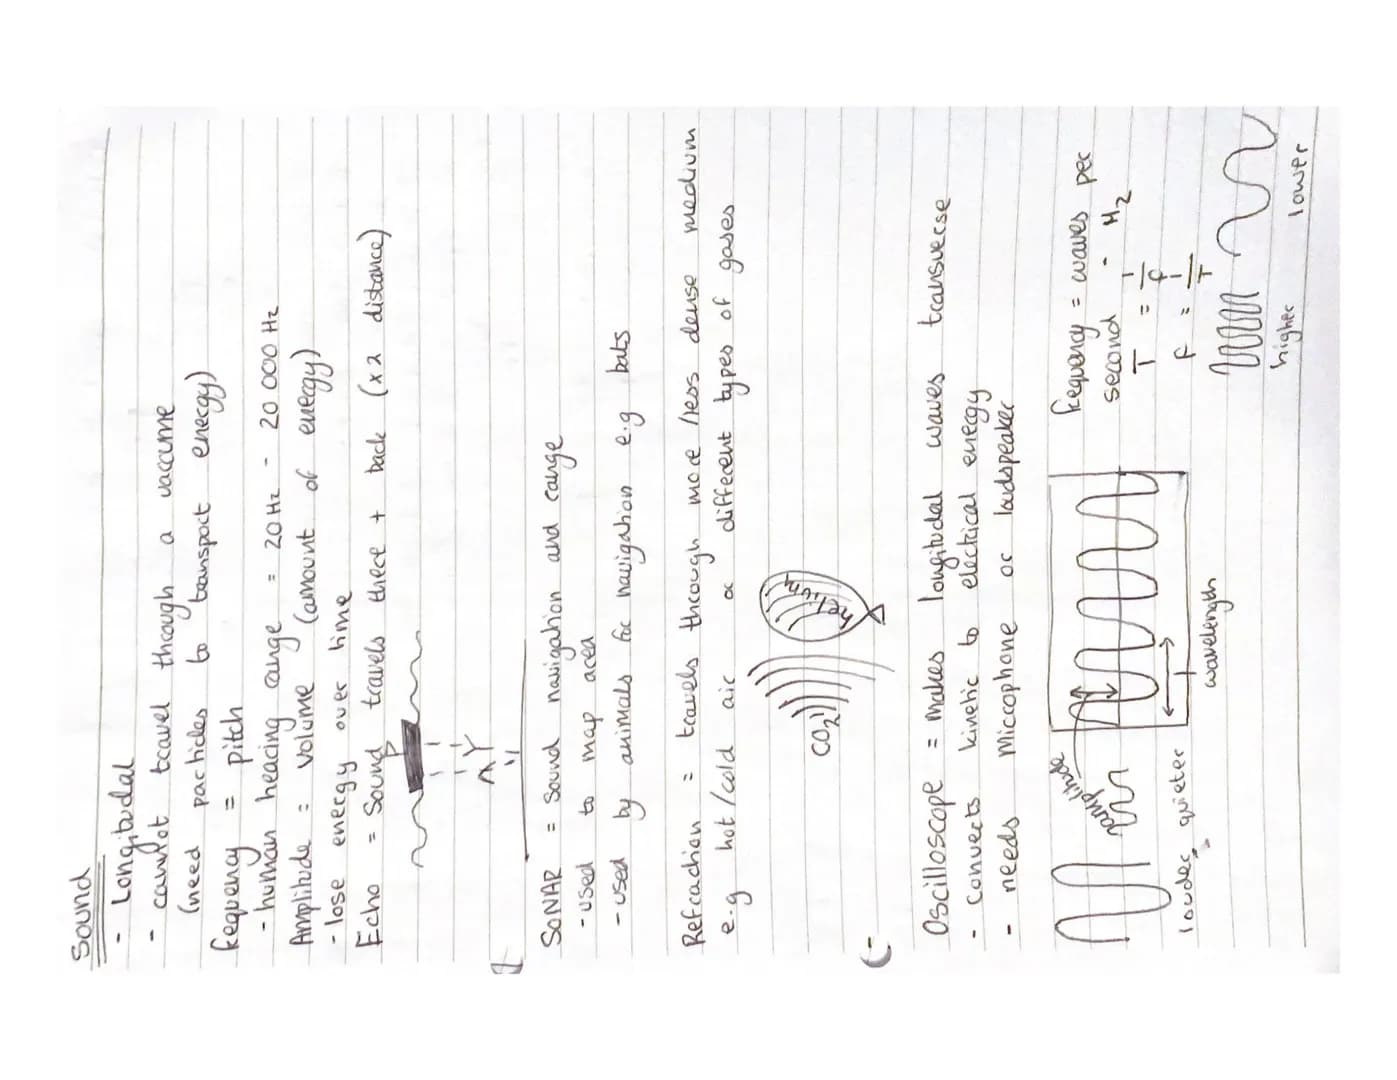 Sound
- Longitudal
- cannot travel through a vaccume
(need particles to transport energy)
frequency = pitch
- human hearing range = 20Hz - 20 000 Hz
Amplitude = volume (amount of energy)
- lose energy over time
Echo = Sound travels there + back (x2 distance)
SONAR = Sound navigation and range
- used to map area
- used by animals for navigation e.g bats
Refraction = travels through more/less dense medium
e.g hot/cold air or different types of gases
CO2
helium
Oscilloscope = makes longitudal waves transverse
- converts kinetic to electrical energy
- needs microphone or loudspeaker
amplitude
louder quieter
wavelength
frequency = waves per
second - Hz
T = 1/f
f = 1/T
higher lower